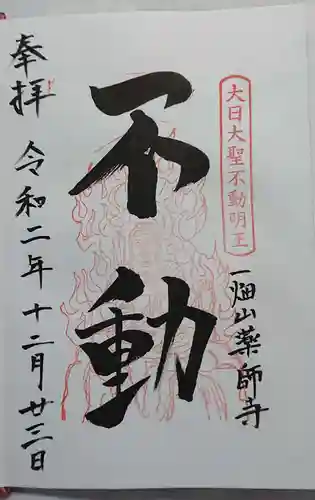 大日大聖不動明王
一畑山薬師寺
不動
奉拝
令和二年十二月廿三日